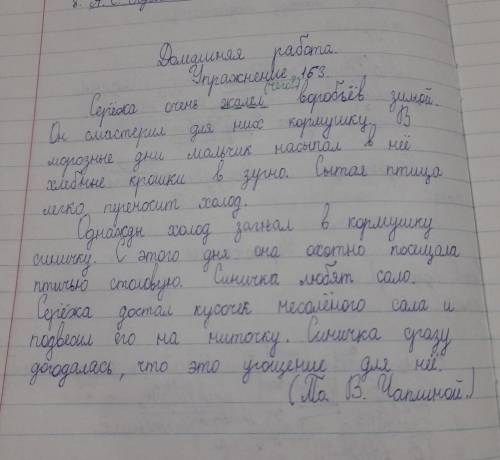 8. А. С.
Домашняя работа.
Упражнение 153.
(чего?)
Серёжа очень жалел воробьёв зимой.
Он смастерил для них кормушку. В
морозные дни мальчик насыпал в неё
хлебные крошки в зурно. Сытая птица
легко переносит холод.
Однажды холод загнал в кормушку
синичку. С этого дня она охотно посищала
птичью столовую. Синичка любят сало.
Серёжа достал кусочек несолёного сала и
подвесил его на ниточку. Синичка сразу
догодалась, что это угощение для неё.
(По В. Чаплиной.)